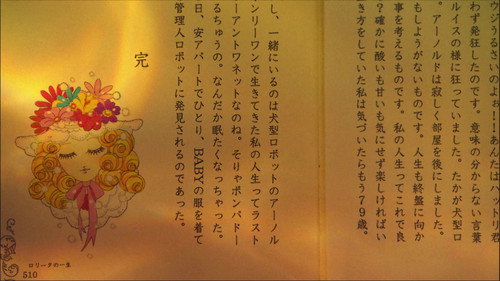 うるさいのよ！！あんたはハットリ君
わず発狂したのです。意味の分からない言葉
ルイスの様に狂っていました。たかが犬型ロ
。アーノルドは寂しく部屋を後にしました。
もしようがないものです。人生も終盤に向か
事を考えるものです。私の人生ってこれで良
？確かに酸いも甘いも気にせず楽しければい
き方をしていた私は気づいたらもう７９歳。
し、一緒にいるのは犬型ロボットのアーノル
ンリーワンで生きてきた私の人生ってラスト
ーアントワネットなのね。そりゃポンパドー
るちゅうの。なんだか眠たくなっちゃった。
日、安アパートでひとり、BABYの服を着て
管理人ロボットに発見されるのであった。
完
ロリータの一生
510